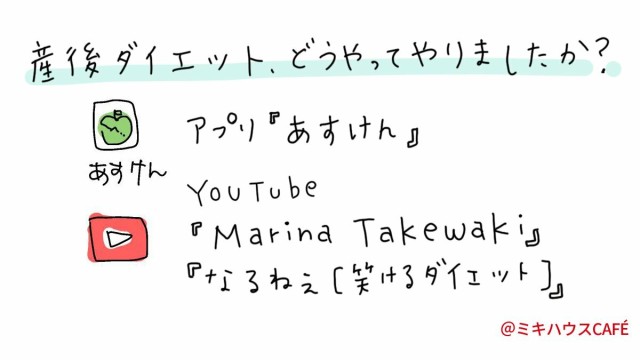 産後ダイエット、どうやってやりましたか?
アプリ『あすけん』
あすけん
YouTube
『Marina Takewaki』
『なるねぇ[笑けるダイエット]』
@ミキハウスCAFÉ